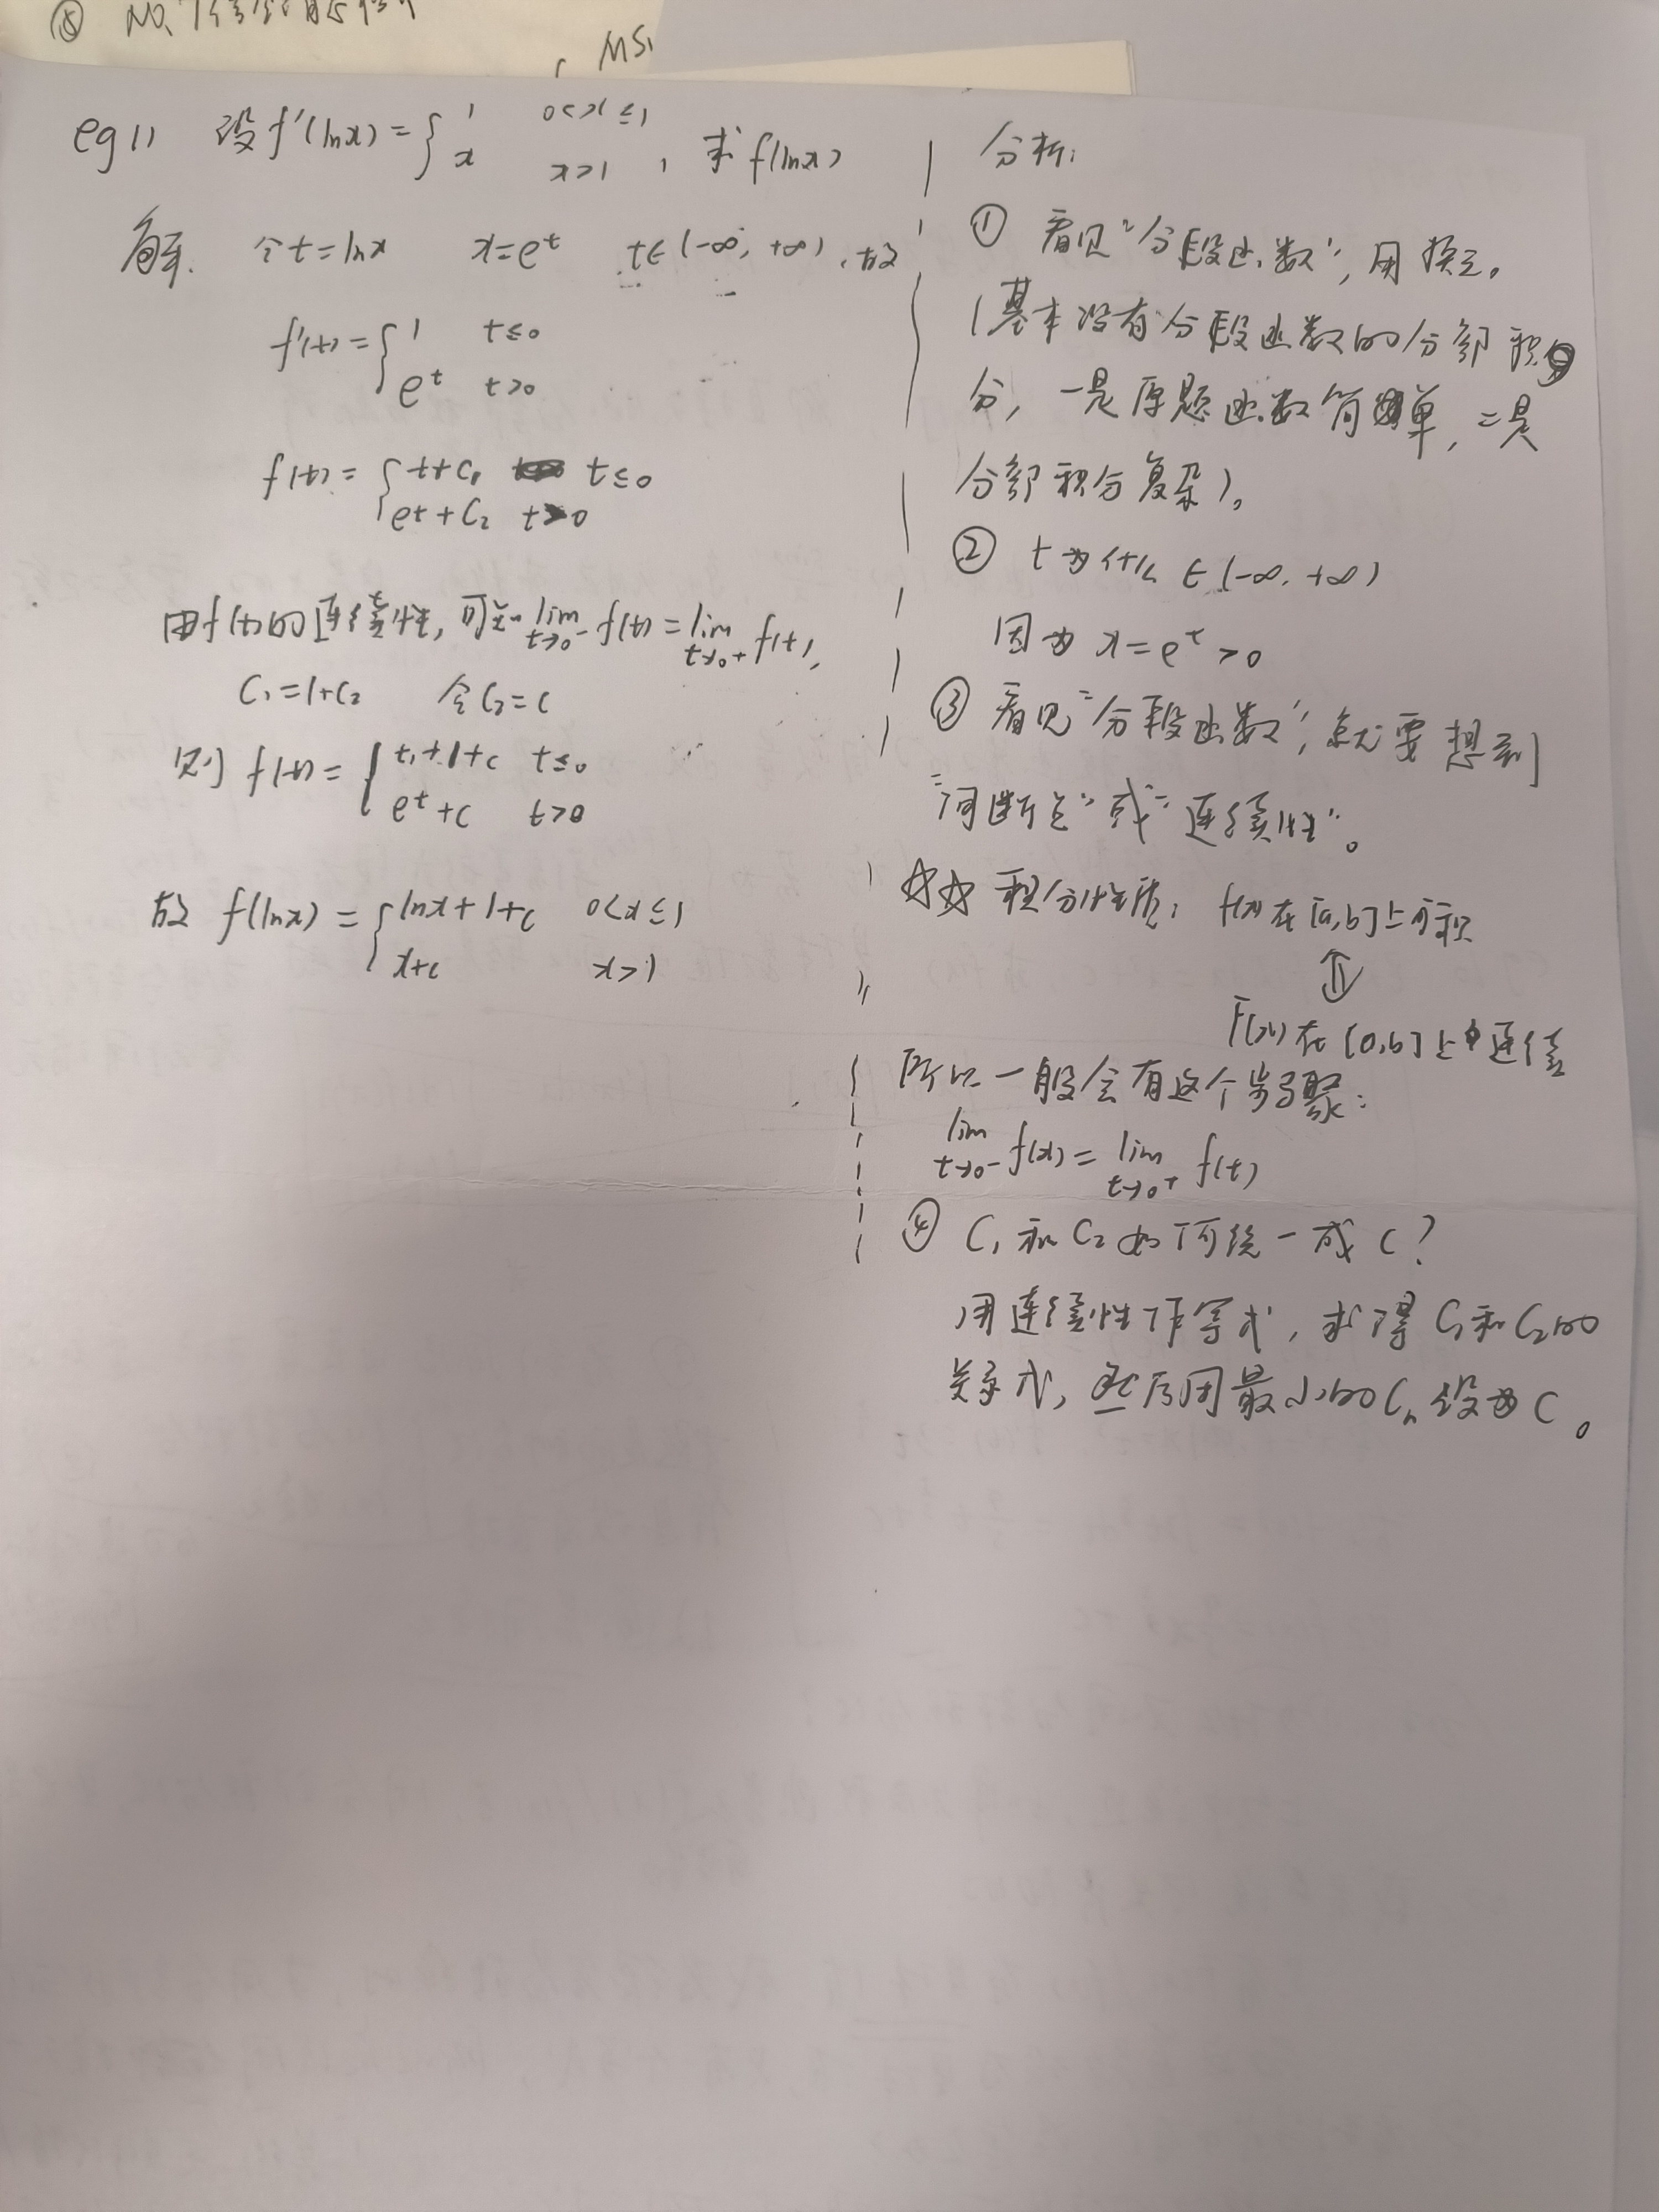 ⑤ NO.
MS
eg 11 设f'(lnx)={1 0<x≤1
x x>1 , 求f(lnx)
解. 令t=lnx x=e^t t∈(-∞, +∞), 故
f'(t)={1 t≤0
e^t t>0
f(t)={t+C₁ t≤0
e^t+C₂ t>0
由f(t)的连续性, 可知 lim t→0⁻ f(t)=lim t→0⁺ f(t),
C₁=1+C₂ 令C₂=C
则 f(t)={t+1+C t≤0
e^t+C t>0
故 f(lnx)={lnx+1+C 0<x≤1
x+C x>1
分析:
① 看见"分段函数", 用换元。
(基本没有分段函数的分部积
分, 一是原题函数简单, 二是
分部积分复杂)。
② t为什么∈(-∞, +∞)
因为 x=e^t>0
③ 看见"分段函数", 就要想到
"间断点"或"连续性"。
☆☆ 积分性质: f(x)在[a,b]上可积
⇕
F(x)在[a,b]上连续
所以一般会有这个步骤:
lim t→0⁻ f(x)= lim t→0⁺ f(t)
④ C₁和C₂如何统一成C?
用连续性作等式, 求得C₁和C₂的
关系式, 然后用最小的Cₙ设为C。